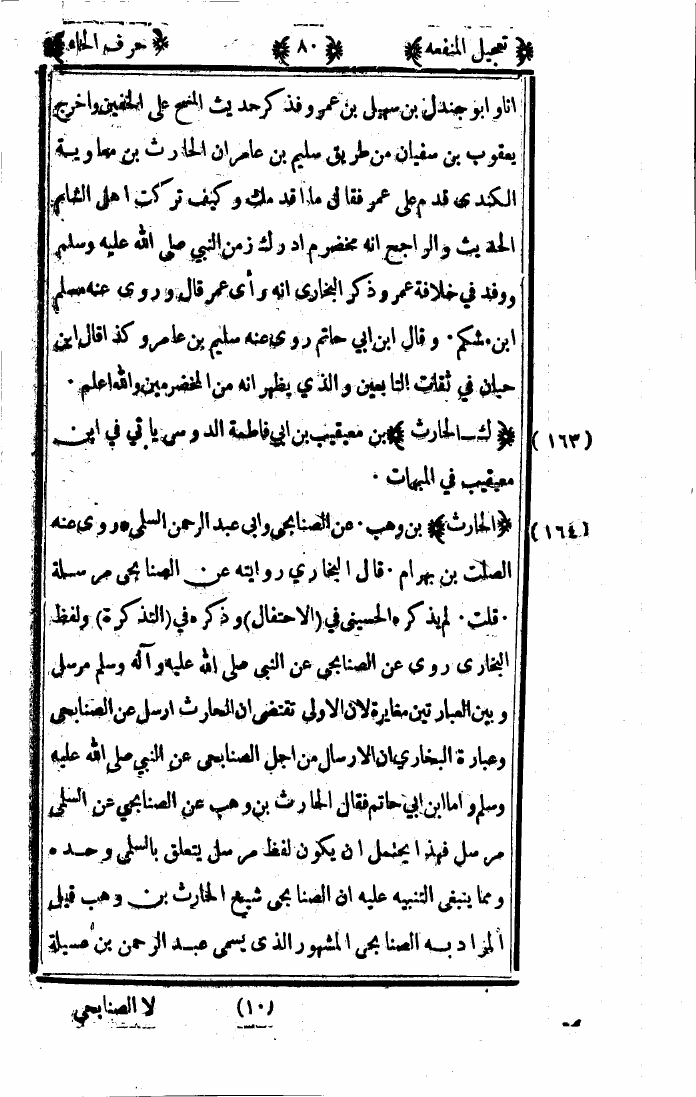 ﴿ تعجيل المنفعه ﴾ ﴿ ٨٠ ﴾ ﴿ حرف الحاء ﴾
انا و ابو جندل بن سهيل بن عمرو فذ كر حديث المسح على الخفين و اخرج
يعقوب بن سفيان من طريق سليم بن عامر ان الحارث بن معاوية
الكندى قدم على عمر فقال ما اقدمك و كيف تركت اهل الشام
الحديث والراجح انه مخضرم ادرك زمن النبي صلى الله عليه وسلم
و وفد في خلافة عمر و ذكر البخارى انه رأى عمر قال و روى عنه مسلم
ابن مشكم ٠ و قال ابن ابي حاتم روى عنه سليم بن عامر و كذا قال ابن
حبان في ثقات التابعين و الذي يظهر انه من المخضرمين والله اعلم ٠
(١٦٣) ﴿ ك ــ الحارث ﴾ بن معيقيب بن ابي فاطمة الدوسى ياتي في ابن
معيقيب في المبهمات ٠
(١٦٤) ﴿ الحارث ﴾ بن وهب ٠ عن الصنابحي وابي عبد الرحمن السلمى ٠ روى عنه
الصلت بن بهرام ٠ قال البخاري روايته عن الصنابحى مرسلة
٠ قلت ٠ لم يذكره الحسيني في (الاحتفال) و ذكره في (التذكرة) ولفظ
البخارى روى عن الصنابحي عن النبي صلى الله عليه و آله وسلم مرسل
و بين العبارتين مغايرة لان الاولى تقتضى ان الحارث ارسل عن الصنابحي
وعبارة البخاري ان الارسال من اجل الصنابحى عن النبي صلى الله عليه
وسلم و اما ابن ابي حاتم فقال الحارث بن وهب عن الصنابحي عن السلمى
مرسل فهذا يحتمل ان يكون لفظ مرسل يتعلق بالسلمى وحده ٠
و مما ينبغى التنبيه عليه ان الصنابحى شيخ الحارث بن وهب قيل
المراد به الصنابحى المشهور الذى يسمى عبد الرحمن بن عسيلة
(١٠) لا الصنابحي